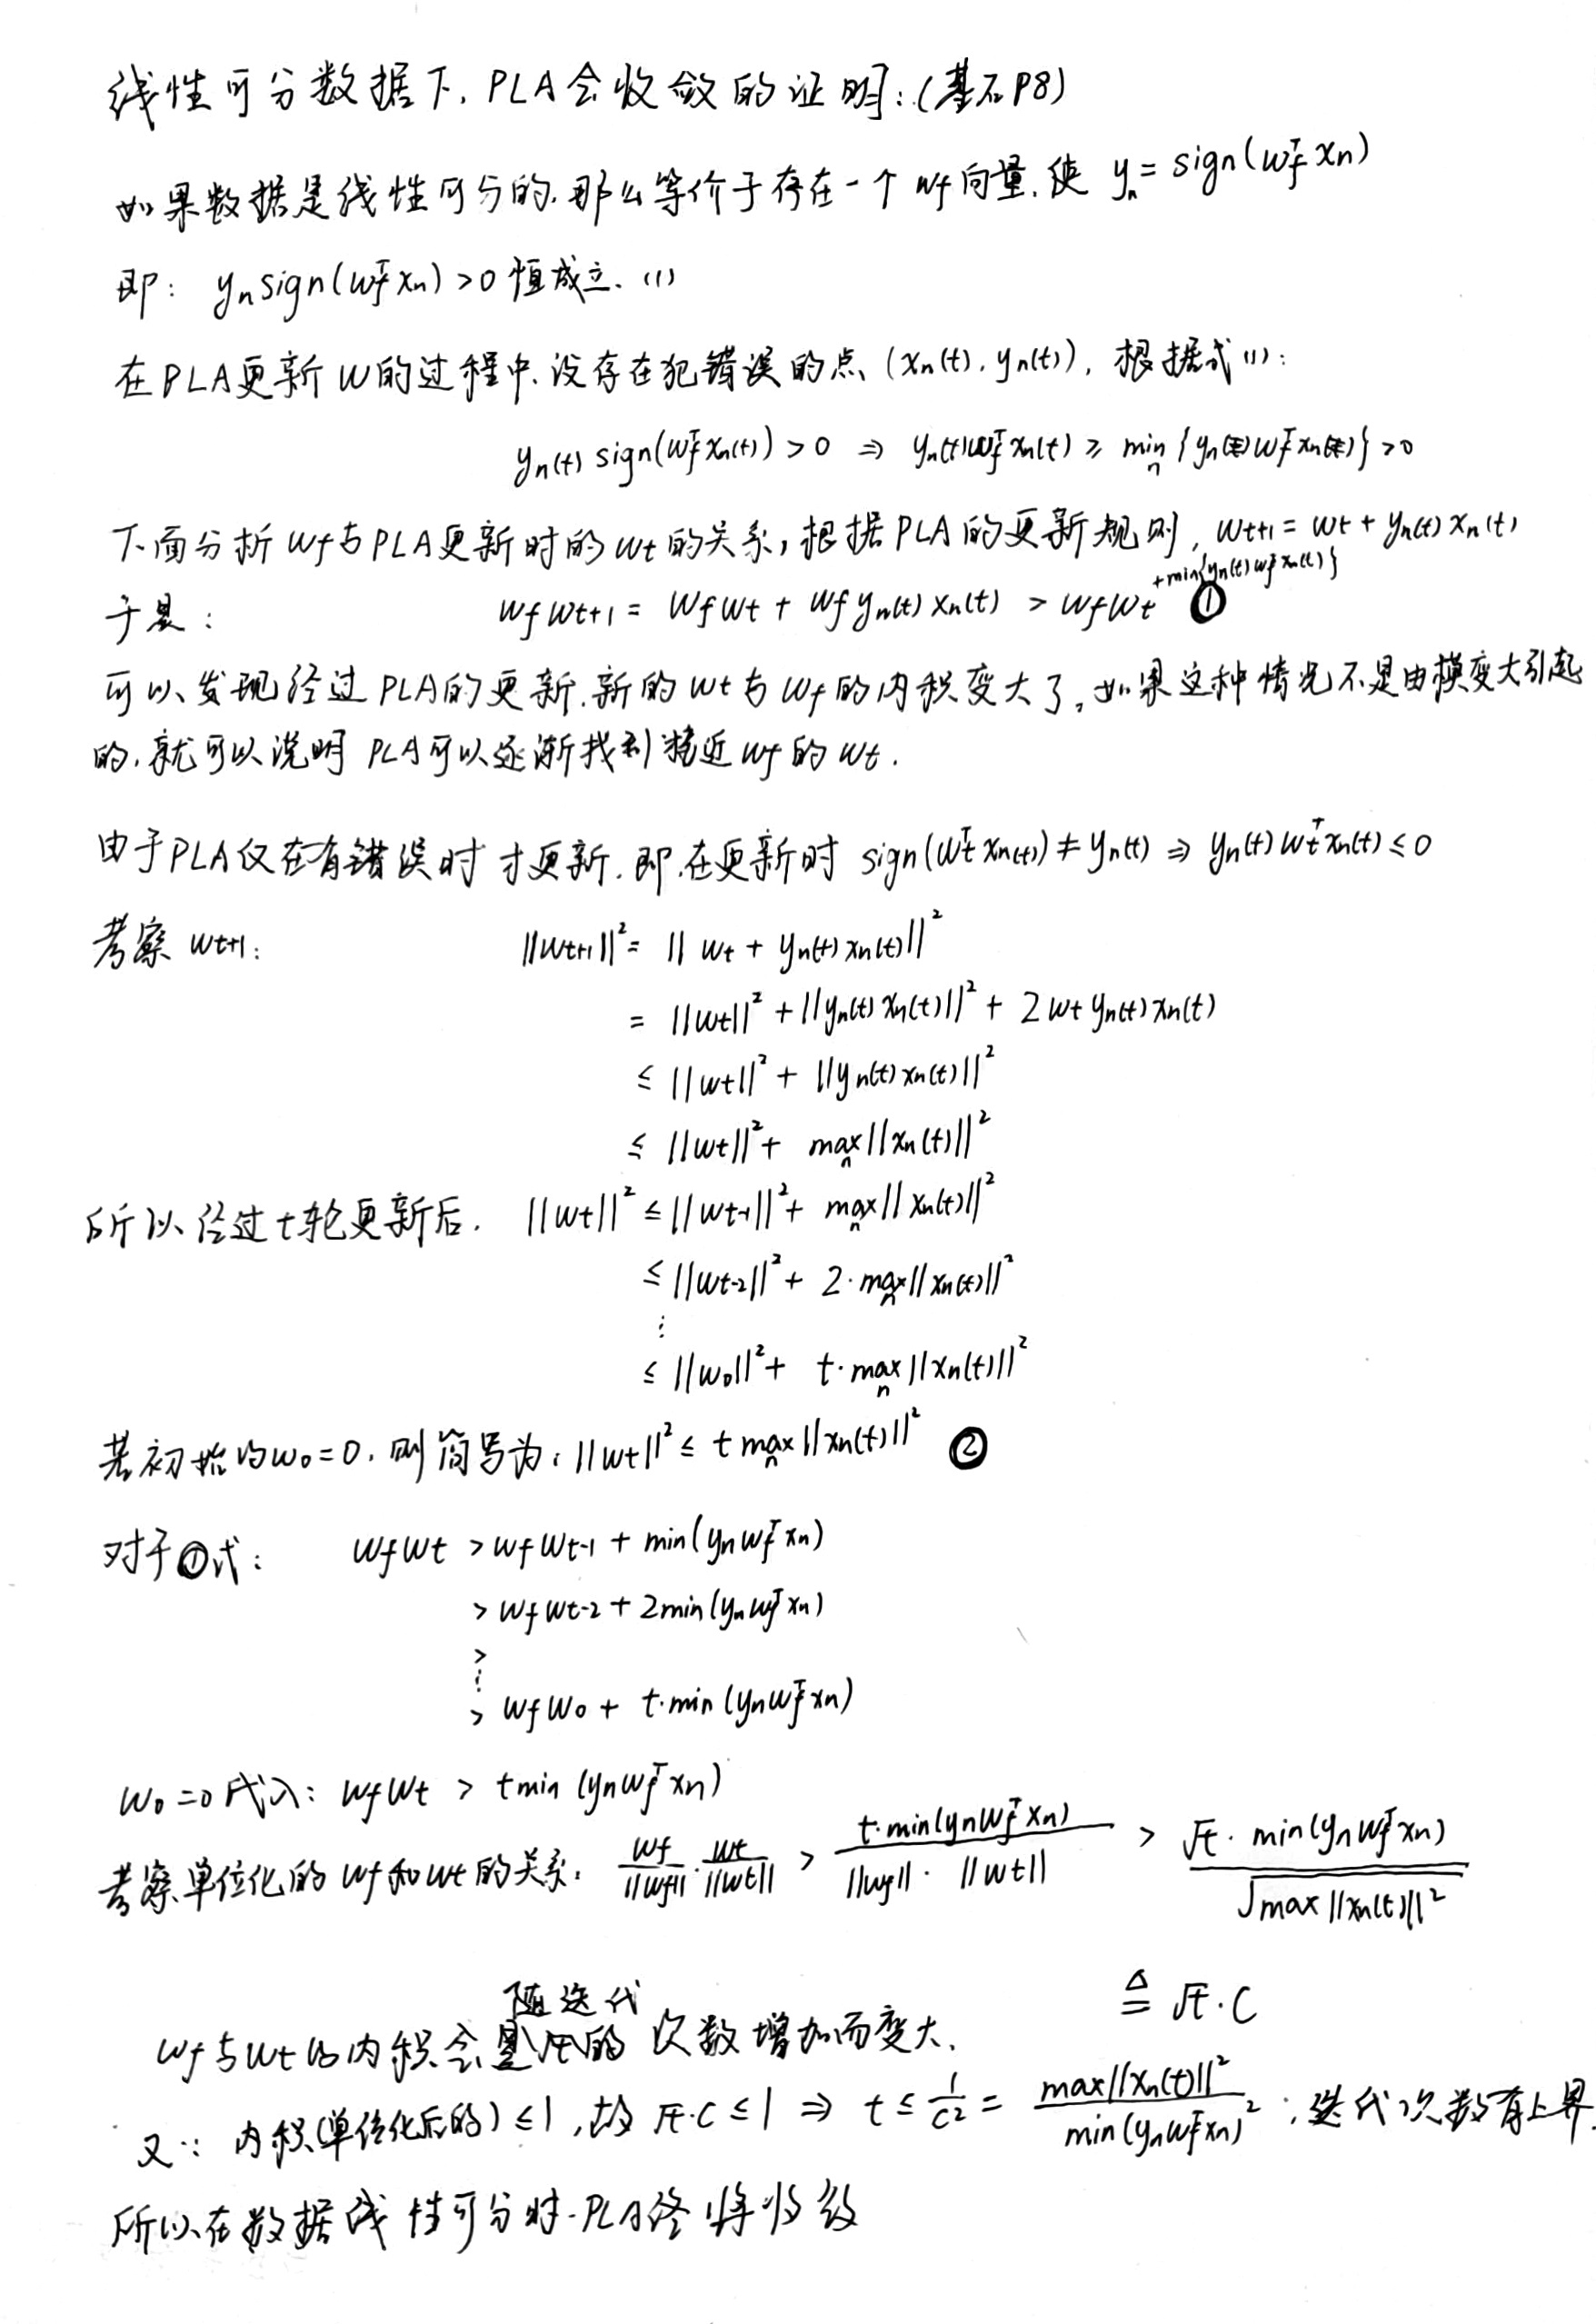 线性可分数据下,PLA会收敛的证明:(基石P8)
如果数据是线性可分的,那么等价于存在一个 wf向量,使 yn = sign(wf^T xn)
即: yn sign(wf^T xn) > 0 恒成立. (1)
在PLA更新W的过程中,设存在犯错误的点 (xn(t), yn(t)), 根据式(1):
yn(t) sign(wf^T xn(t)) > 0 ⇒ yn(t) wf^T xn(t) ≥ min_n {yn(t) wf^T xn(t)} > 0
下面分析 wf与PLA更新时的 wt 的关系,根据PLA的更新规则, wt+1 = wt + yn(t) xn(t)
于是: wf wt+1 = wf wt + wf yn(t) xn(t) > wf wt + min{yn(t) wf^T xn(t)} ①
可以发现经过PLA的更新,新的 wt与 wf 的内积变大了,如果这种情况不是由模变大引起
的,就可以说明 PLA可以逐渐找到接近 wf 的 wt.
由于PLA仅在有错误时才更新,即,在更新时 sign(wt^T xn(t)) ≠ yn(t) ⇒ yn(t) wt^T xn(t) ≤ 0
考察 wt+1: ||wt+1||² = || wt + yn(t) xn(t)||²
= ||wt||² + ||yn(t) xn(t)||² + 2 wt yn(t) xn(t)
≤ ||wt||² + ||yn(t) xn(t)||²
≤ ||wt||² + max_n ||xn(t)||²
所以经过t轮更新后. ||wt||² ≤ ||wt-1||² + max_n ||xn(t)||²
≤ ||wt-2||² + 2·max_n ||xn(t)||²
⋮
≤ ||w0||² + t·max_n ||xn(t)||²
若初始的w0=0,则简写为: ||wt||² ≤ t max_n ||xn(t)||² ②
对于①式: wf wt > wf wt-1 + min(yn wf^T xn)
> wf wt-2 + 2min(yn wf^T xn)
>
⋮
> wf w0 + t·min(yn wf^T xn)
w0=0代入: wf wt > t min (yn wf^T xn)
考察单位化的 wf和wt 的关系: wf/||wf|| · wt/||wt|| > t·min(yn wf^T xn) / (||wf|| · ||wt||) > √t · min(yn wf^T xn) / √(max ||xn(t)||²)
≜ √t · C
wf与wt的内积会随迭代的次数增加而变大.
又∵ 内积(单位化后的) ≤ 1 ,故 √t·C ≤ 1 ⇒ t ≤ 1/C² = max||xn(t)||² / min(yn wf^T xn)² ,迭代次数有上界.
所以在数据线性可分时.PLA终将收敛